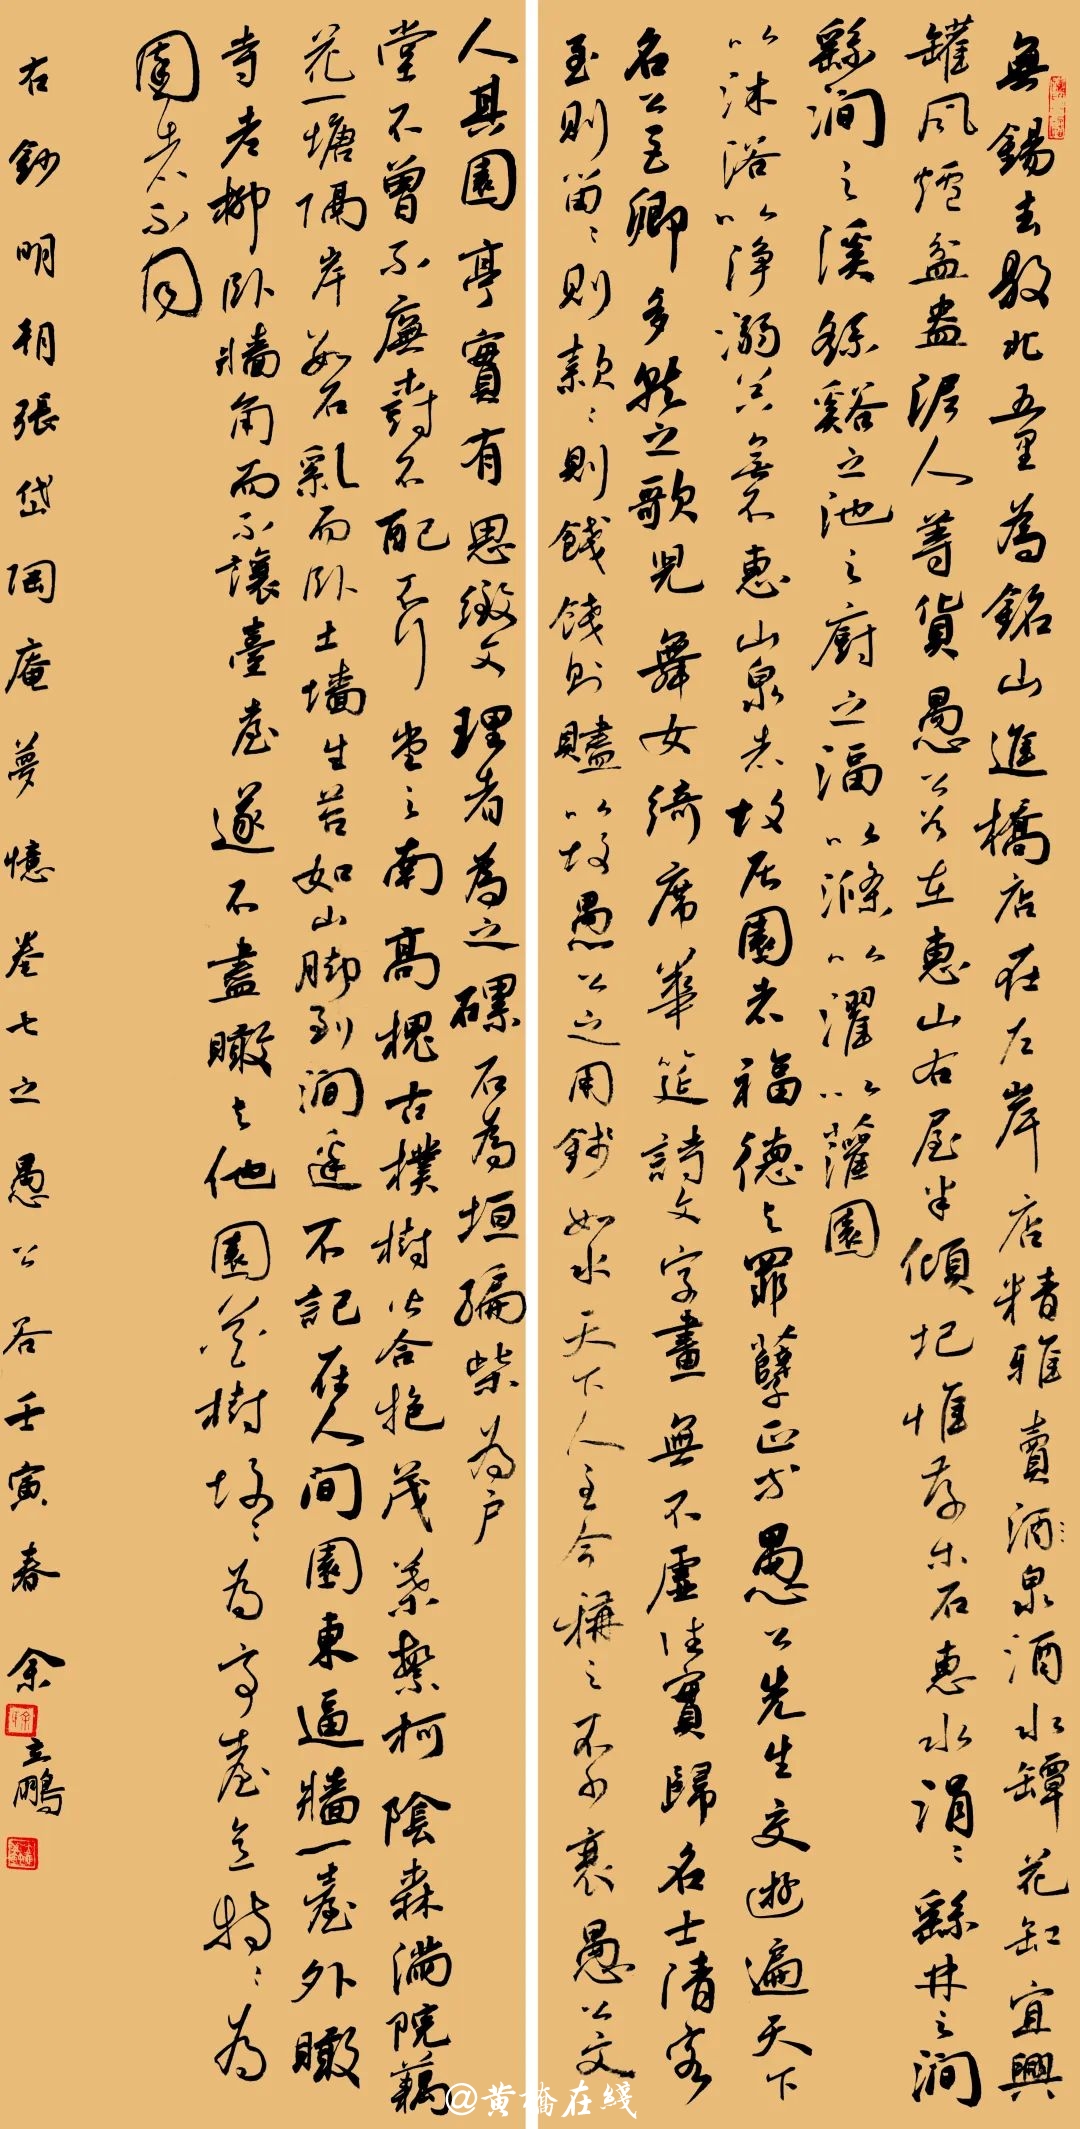 無錫去縣北五里為銘山進橋店在左岸店精雅賣酒泉酒水罈花缸宜興
罐風爐盆盎泥人等貨愚公谷在惠山右屋半傾圮惟存木石惠水涓涓繇井之澗
繇澗之溪繇谿之池之廚之湢以滌以濯以灌園
以沐浴以淨溺器無不惠山泉者故居園者福德與罪孽正等愚公先生交遊遍天下
名公巨卿多就之歌兒舞女綺席華筵詩文字畫無不虛往實歸名士清客
至則留留則款款則餞餞則贐以故愚公之用錢如水天下人至今稱之不少衰愚公文
人其園亭實有思緻文理者為之磥石為垣編柴為戶
堂不曾不廡樹不配不行堂之南高槐古樸樹皆合抱茂葉繁柯陰森滿院藕
花一塘隔岸數石亂而臥土墻生苔如山腳到澗邊不記在人間園東逼牆一臺外瞰
寺老柳臥牆角而不讓臺臺遂不盡瞰與他園花樹故故為亭臺意特特為
園者不同
右鈔明朝張岱陶庵夢憶卷七之愚公谷壬寅春 余立鵬
@黄橋在线